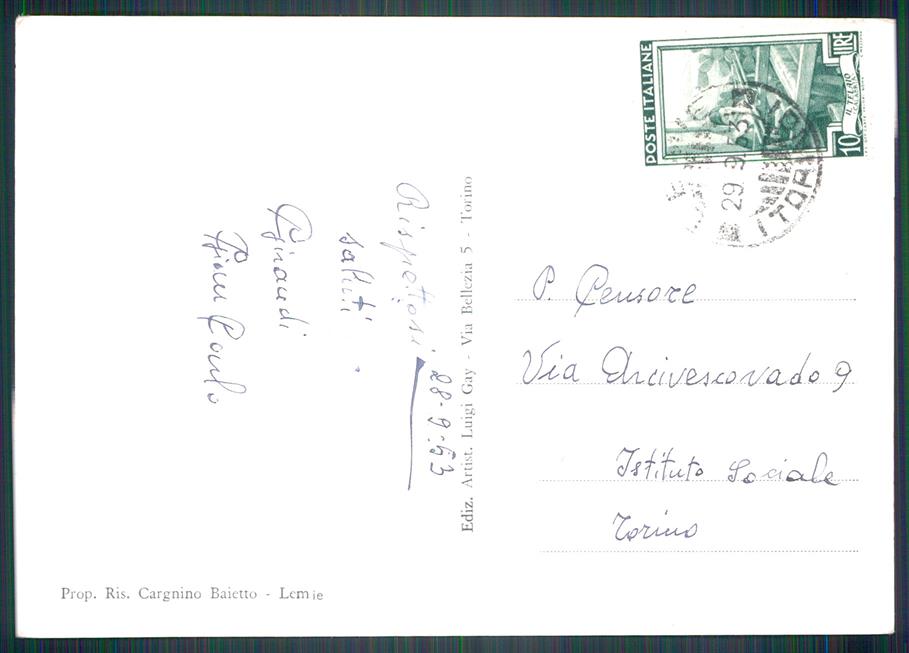 POSTE ITALIANE
LIRE
IL TELAIO
CALABRIA
10
29.9.53
Rispettosi
saluti.
Giraudi
Gian Carlo
28-9-53
Ediz. Artist. Luigi Gay - Via Bellezia 5 - Torino
P. Censore
Via Arcivescovado 9
Istituto Sociale
Torino
Prop. Ris. Cargnino Baietto - Lemie